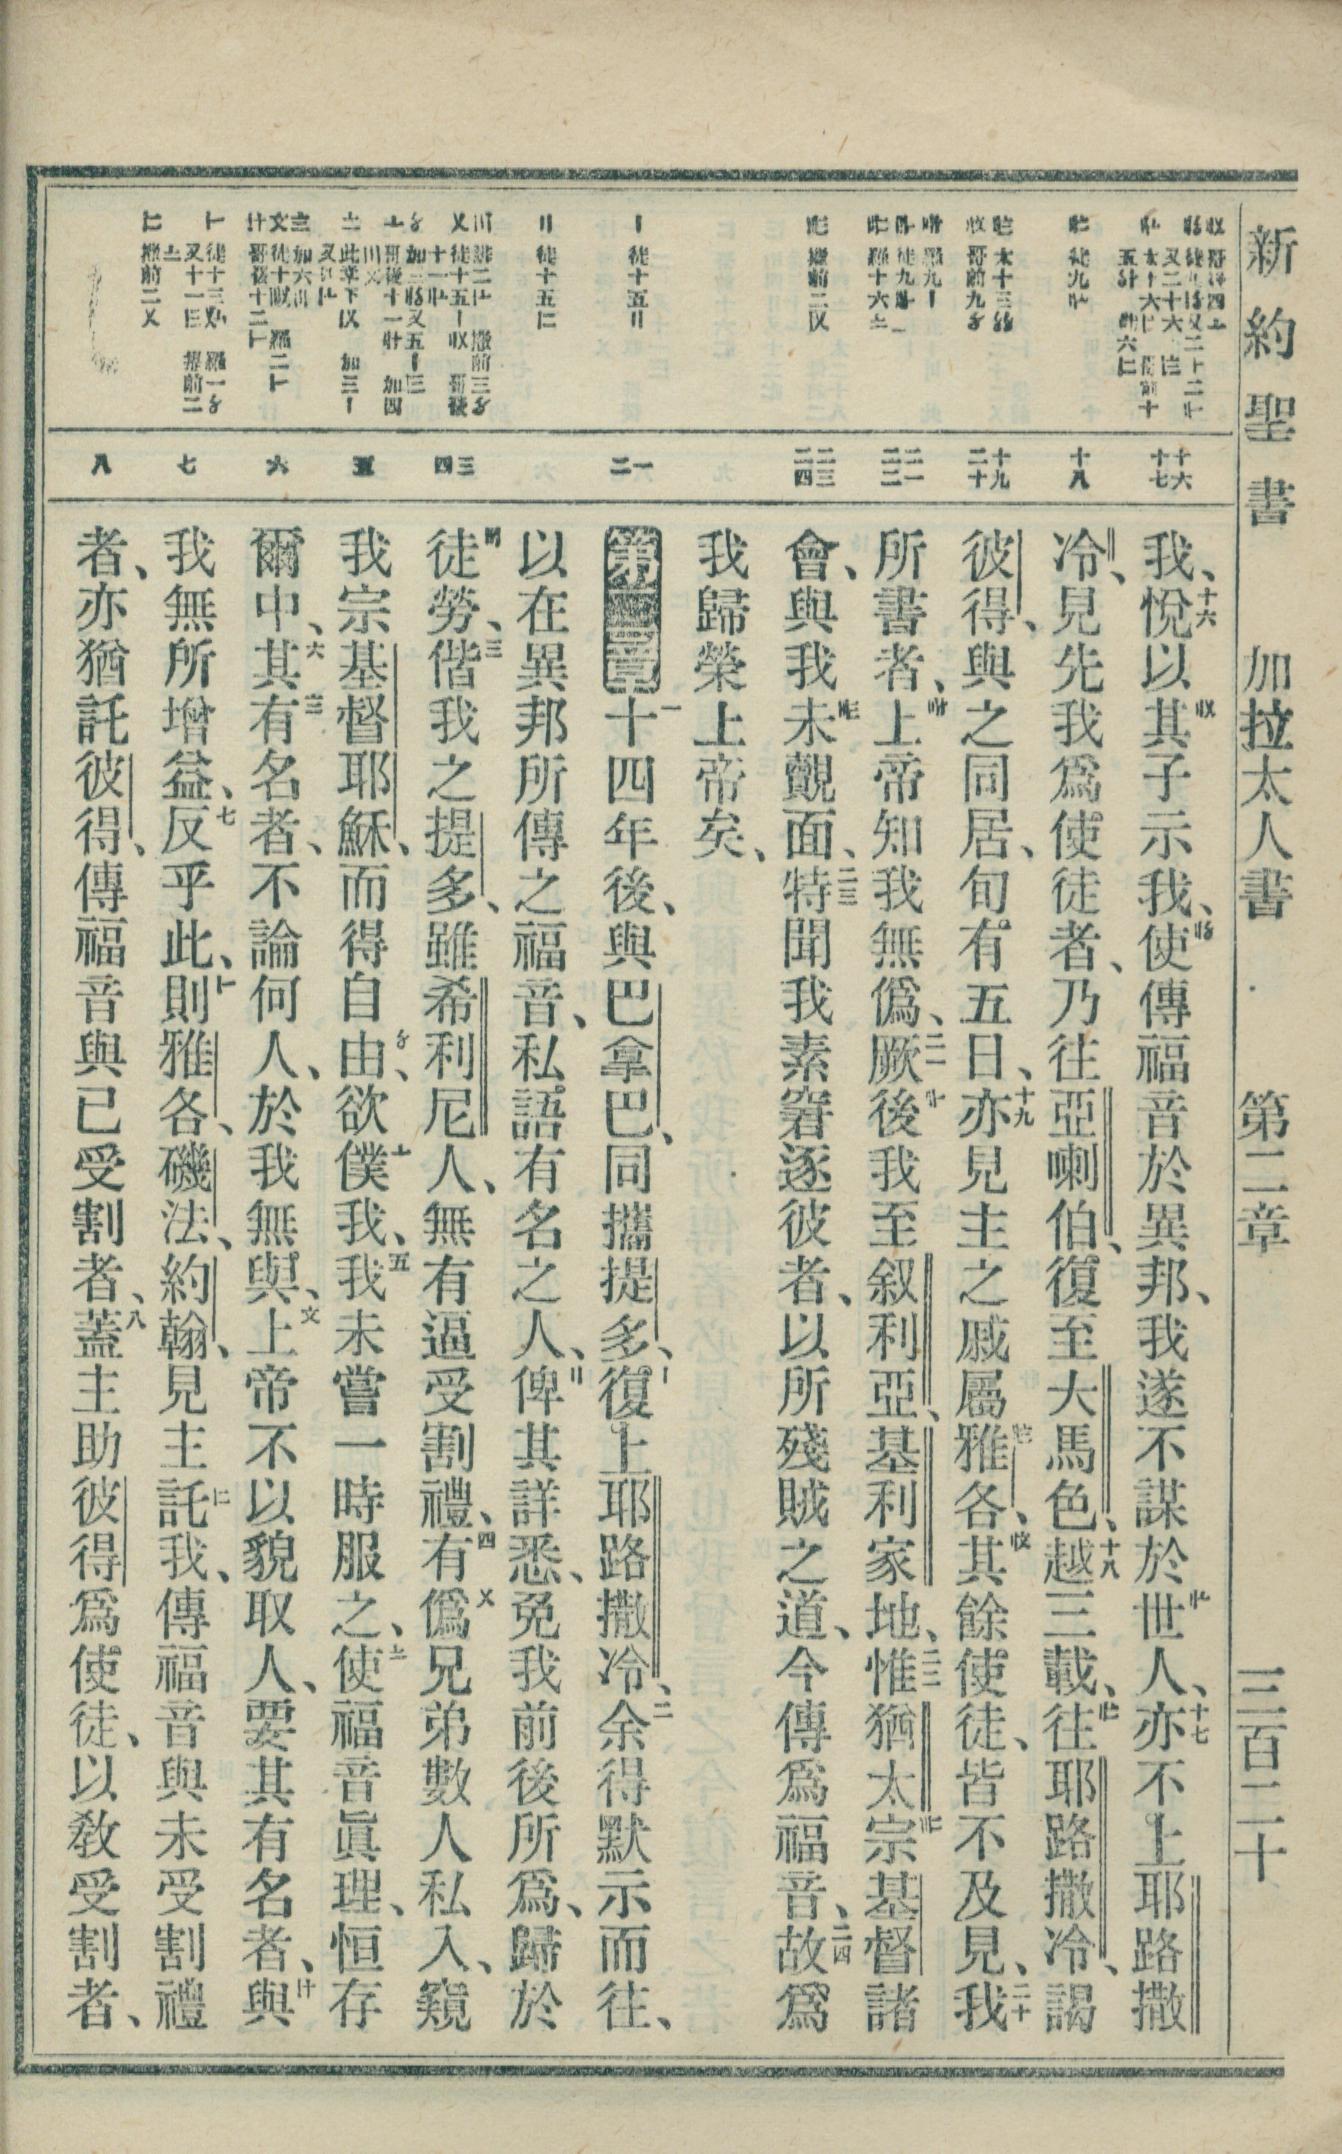 新約聖書 加拉太人書 第二章 三百二十
十六
十七
十八
十九
二十
二一
二二
二三
二四
一
二
三
四
五
六
七
八
我、悅以其子示我、使傳福音於異邦、我遂不謀於世人、亦不上耶路撒
冷、見先我爲使徒者、乃往亞喇伯、復至大馬色、越三載、往耶路撒冷、謁
彼得、與之同居、旬有五日、亦見主之戚屬雅各、其餘使徒、皆不及見、我
所書者、上帝知我無僞、厥後我至叙利亞、基利家地、惟猶太宗基督諸
會、與我未覿面、特聞我素窘逐彼者、以所殘賊之道、今傳爲福音、故爲
我歸榮上帝矣、
第二章 十四年後、與巴拿巴、同攜提多、復上耶路撒冷、余得默示而往、
以在異邦所傳之福音、私語有名之人、俾其詳悉、免我前後所爲、歸於
徒勞、偕我之提多、雖希利尼人、無有逼受割禮、有僞兄弟數人私入、窺
我宗基督耶穌、而得自由、欲僕我、我未嘗一時服之、使福音眞理、恒存
爾中、其有名者、不論何人、於我無與、上帝不以貌取人、要其有名者、與
我無所增益、反乎此、則雅各、磯法、約翰、見主託我、傳福音與未受割禮
者、亦猶託彼得、傳福音與已受割者、蓋主助彼得爲使徒、以教受割者、